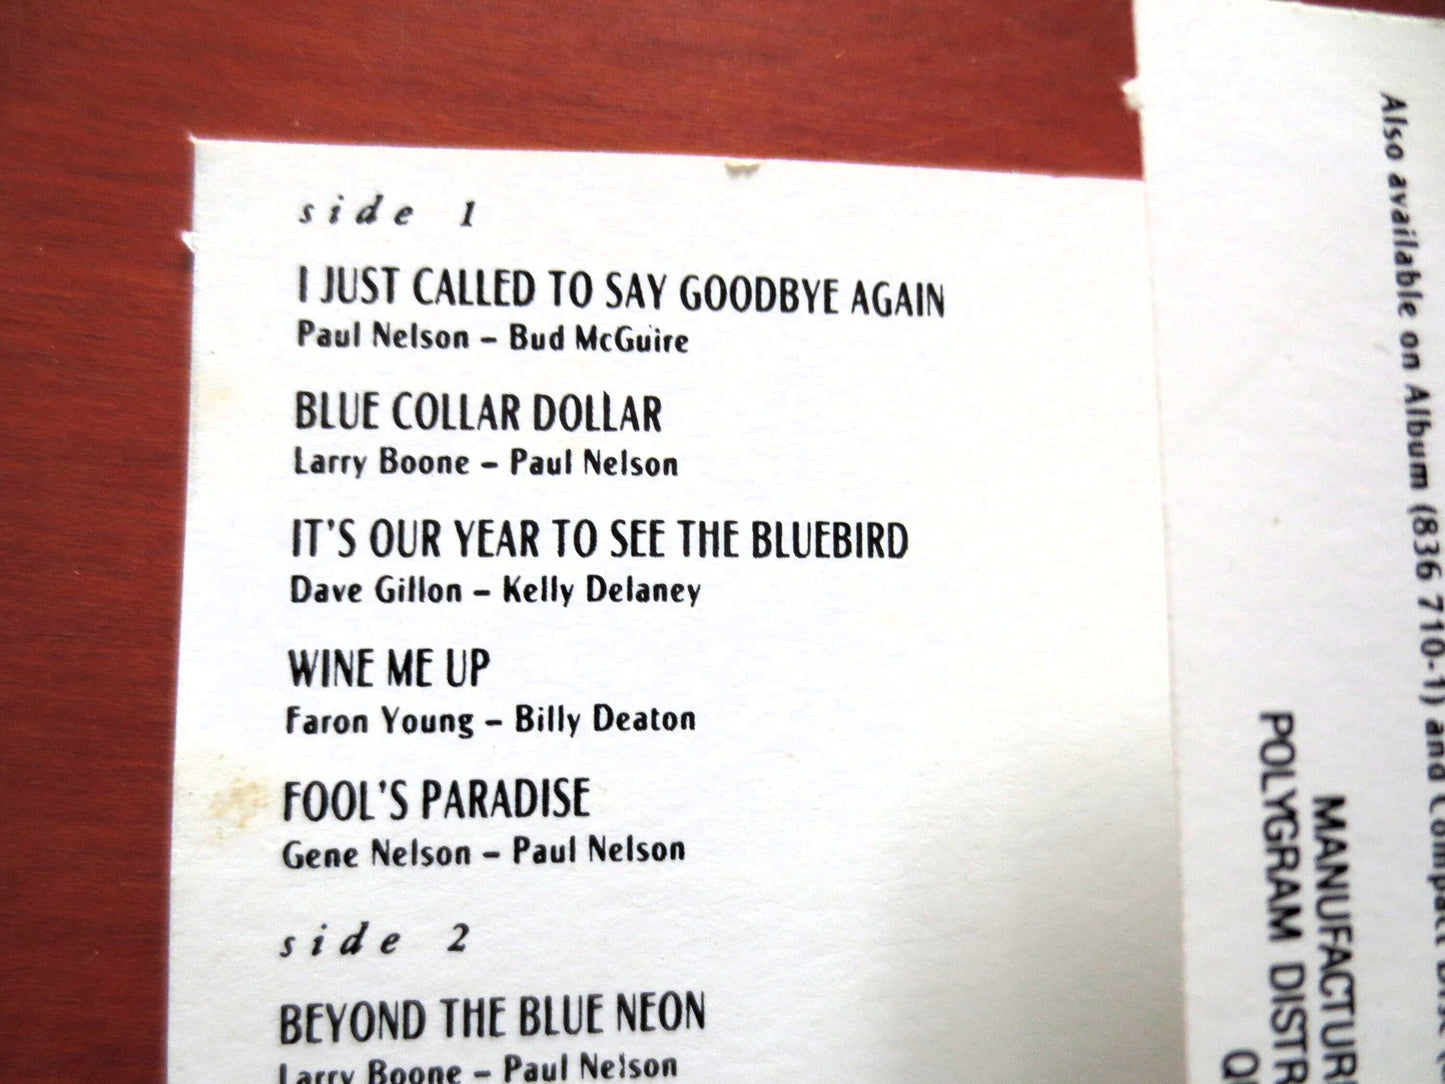 side 1
I JUST CALLED TO SAY GOODBYE AGAIN
Paul Nelson – Bud McGuire
BLUE COLLAR DOLLAR
Larry Boone – Paul Nelson
IT'S OUR YEAR TO SEE THE BLUEBIRD
Dave Gillon – Kelly Delaney
WINE ME UP
Faron Young – Billy Deaton
FOOL'S PARADISE
Gene Nelson – Paul Nelson
side 2
BEYOND THE BLUE NEON
Larry Boone – Paul Nelson
Also available on Album (836 710-1) and Compact Disc
MANUFACTUR
POLYGRAM DISTR